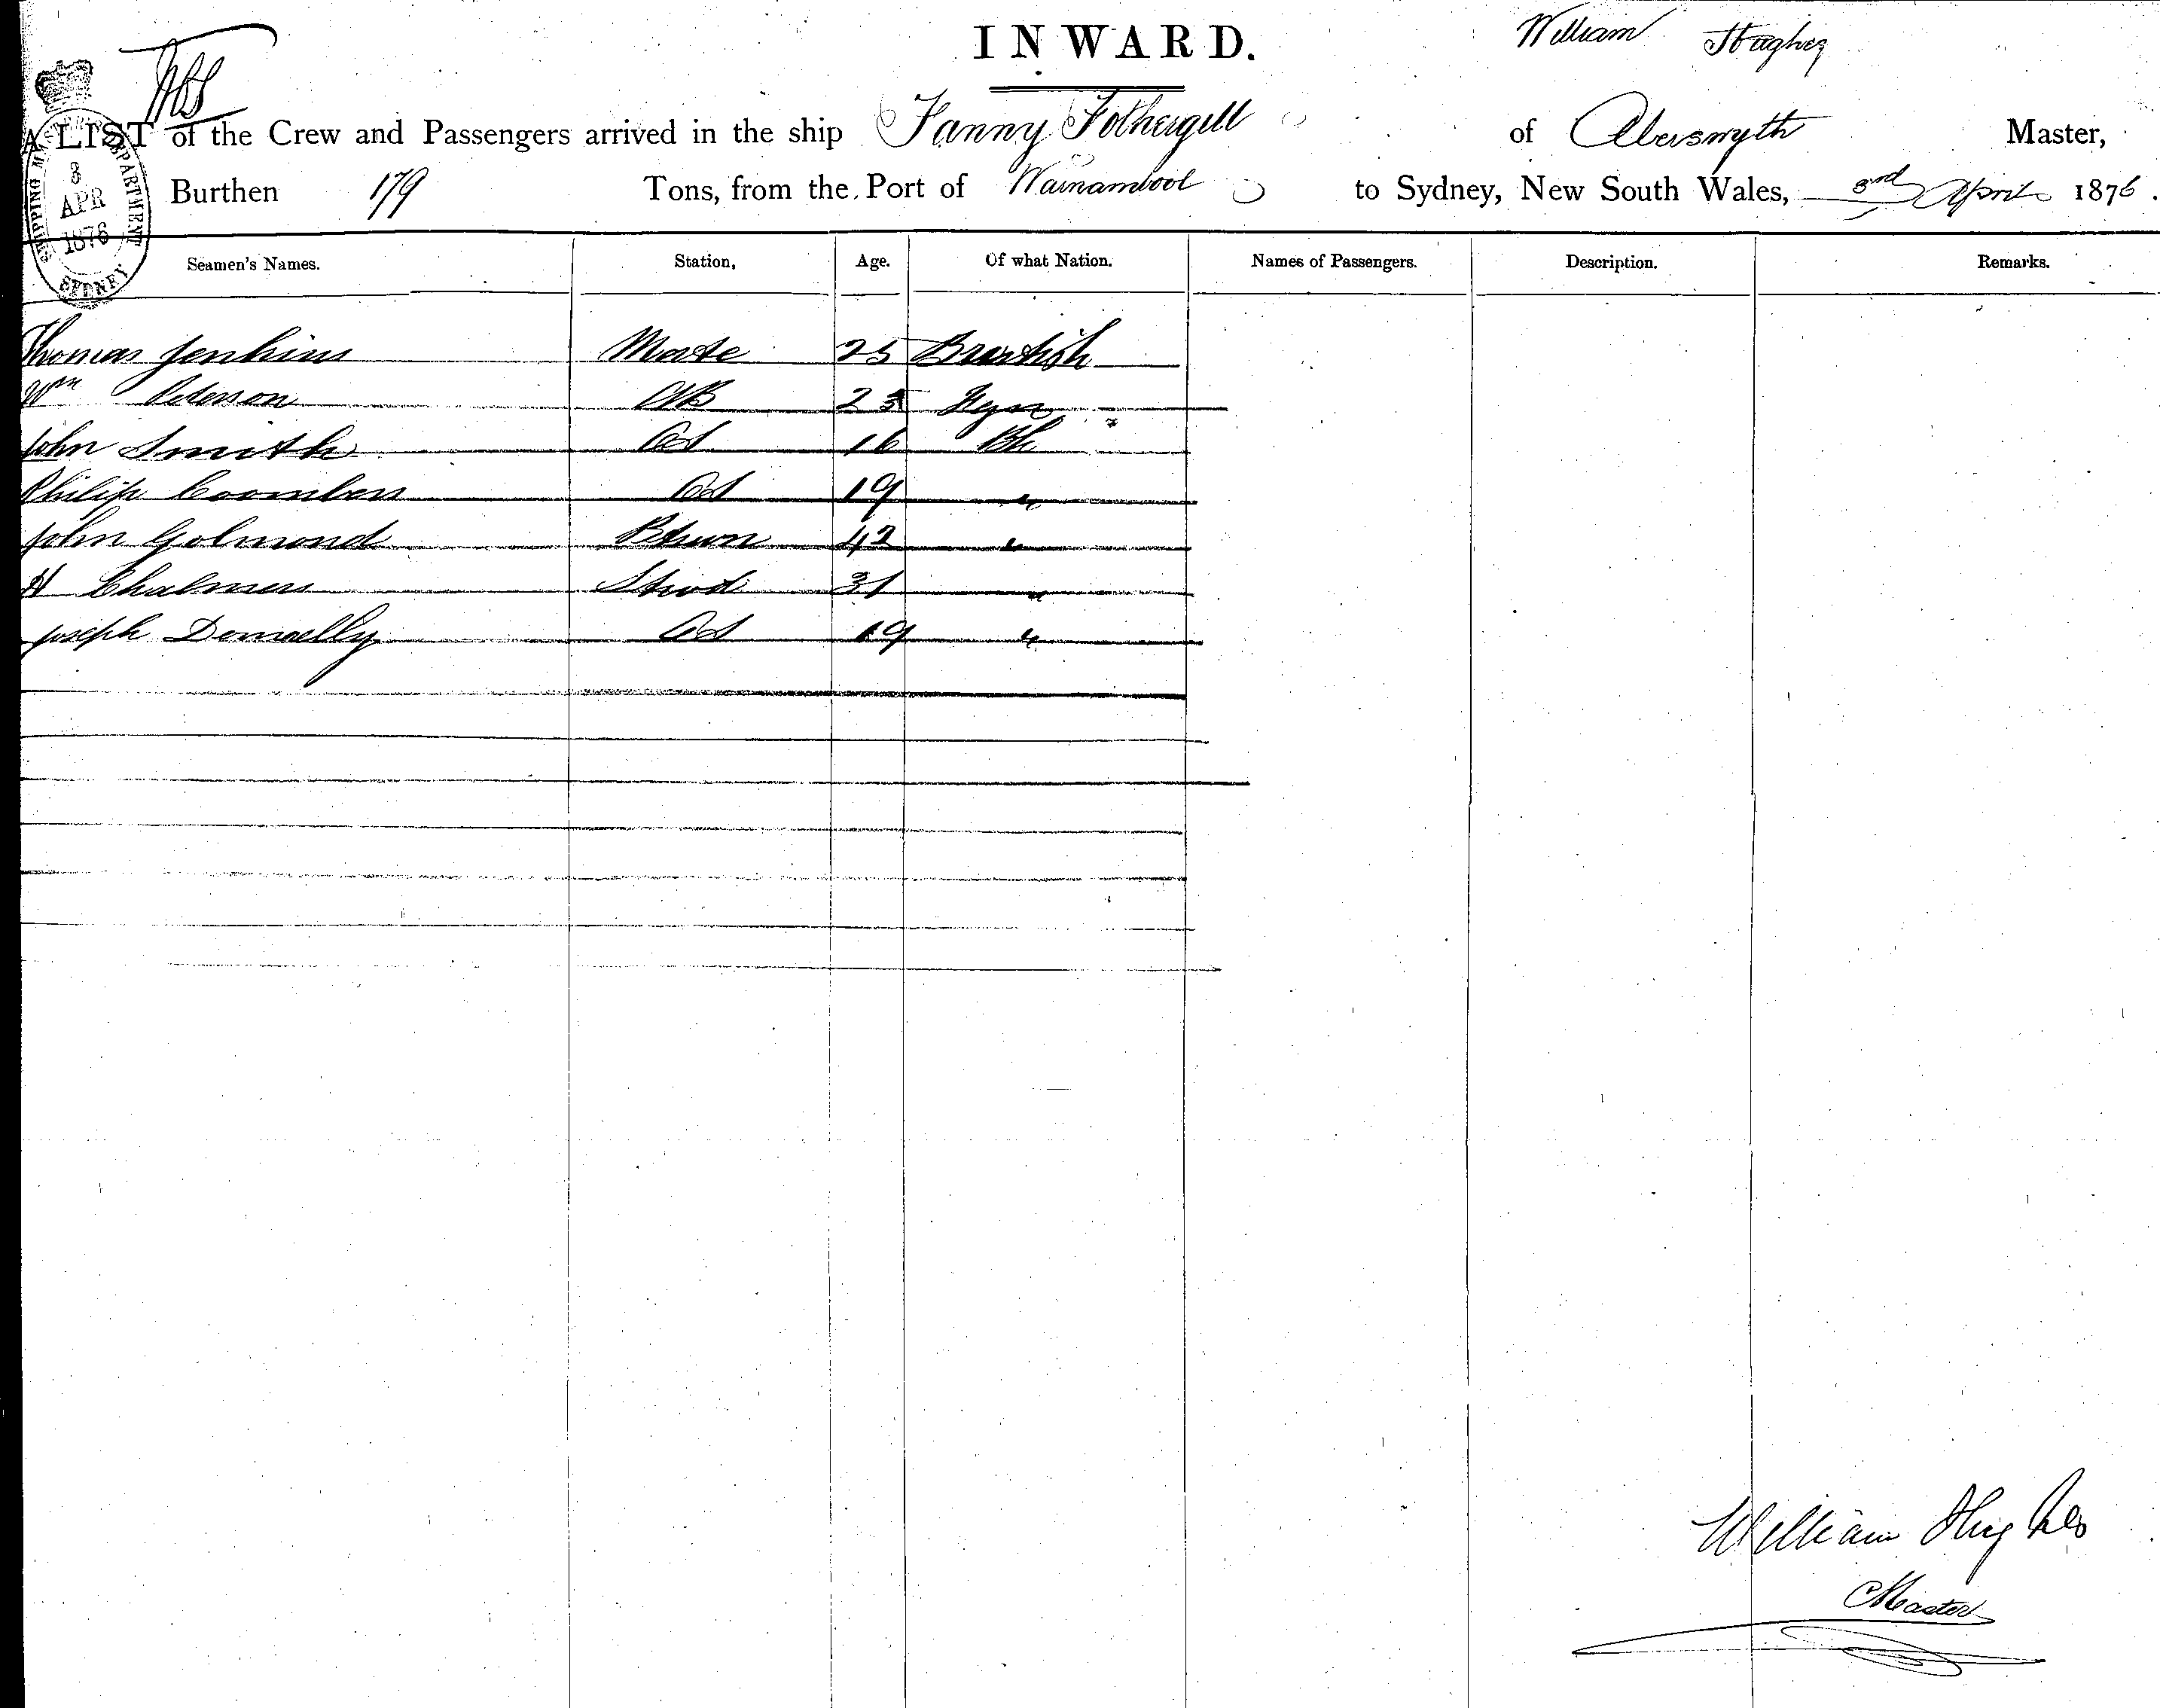 INWARD.
William Hughes
A LIST of the Crew and Passengers arrived in the ship Fanny Fothergill of Aberswyth Master,
Burthen 179 Tons, from the Port of Warnambool to Sydney, New South Wales, 3rd April 1876.
SHIPPING MASTER'S DEPARTMENT
3
APR
1876
SYDNEY
Seamen's Names. Station, Age. Of what Nation. Names of Passengers. Description. Remarks.
Thomas Jenkins Mate 25 British
Wm Peterson AB 23
John Smith Od 16 Bh
Philip Coombes Od 19 "
John Golmond 42 "
H Chalmers Stwd 31 "
Joseph Donnelly Od 19 "
William Hughes
Master